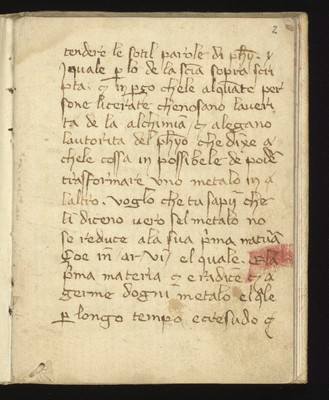 2
tendere le sotil parole di phy. y
lquale p lo de la scia sopra scri
pta. et in pgo chele alquate per
sone literate che nosano la veri
ta de la alchimia et alegano
lautorita del phyo che dixe a
chele cossa in possibele de podē
trasformare uno metalo in a
laltro. voglo che tu sapij che
li diceno vero sel metalo no
se reduce ala sua pma matīa
çoe in ar. vi. el quale. e la
pma materia et e radice et a
germe dogni metalo el qle
p longo tempo e cresudo et